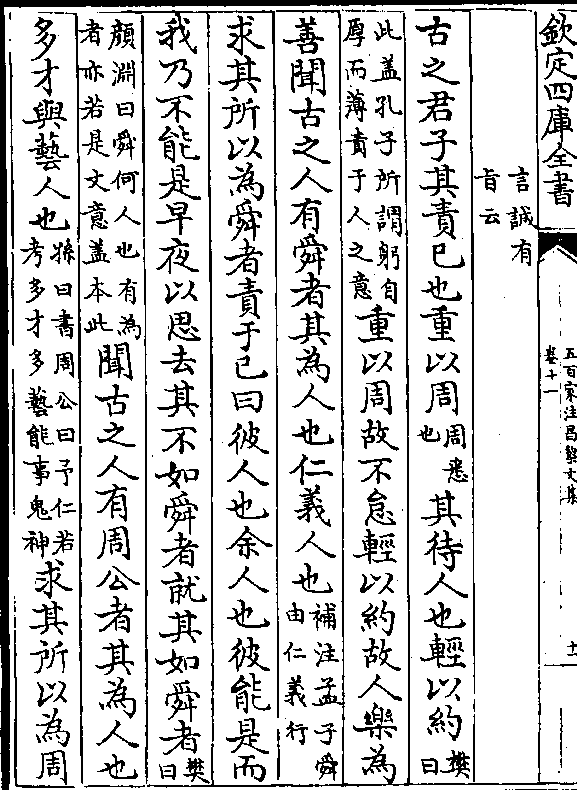 欽定四庫全書
五百家注昌黎文集
卷十一
十
言誠有
旨云
古之君子其責已也重以周周悉也其待人也輕以約樊曰
此盖孔子所謂躬自厚而薄責于人之意重以周故不怠輕以約故人樂為
善聞古之人有舜者其為人也仁義人也補注孟子舜由仁義行
求其所以為舜者責于己曰彼人也余人也彼能是而
我乃不能是早夜以思去其不如舜者就其如舜者樊曰
顔淵曰舜何人也有為者亦若是文意盖本此聞古之人有周公者其為人也
多才與藝人也孫曰書周公曰予仁若考多才多藝能事鬼神求其所以為周